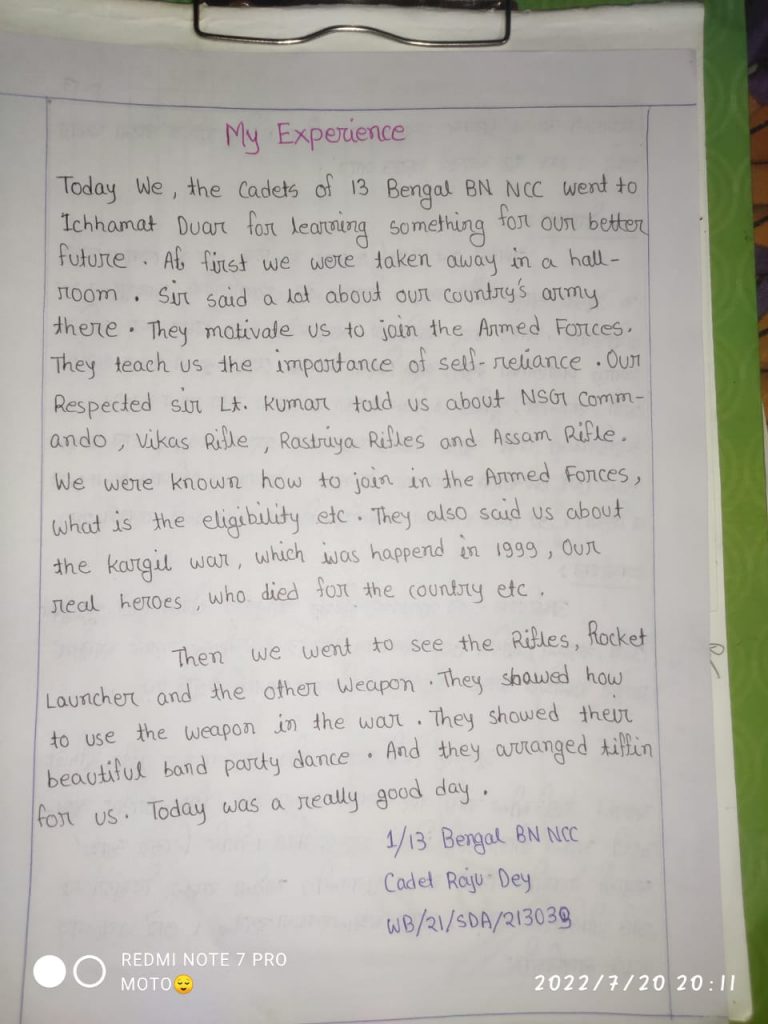 My Experience
Today We, the Cadets of 13 Bengal BN NCC went to
Ichhamat Duar for learning something for our better
future. At first we were taken away in a hall-
room. Sir said a lot about our country's army
there. They motivate us to join the Armed Forces.
They teach us the importance of self-reliance. Our
Respected sir Lt. Kumar told us about NSG Comm-
ando, Vikas Rifle, Rastriya Rifles and Assam Rifle.
We were known how to join in the Armed Forces,
what is the eligibility etc. They also said us about
the Kargil war, which was happend in 1999, Our
real heroes, who died for the country etc.
Then we went to see the Rifles, Rocket
Launcher and the other Weapon. They showed how
to use the weapon in the war. They showed their
beautiful band party dance. And they arranged tiffin
for us. Today was a really good day.
1/13 Bengal BN NCC
Cadet Raju Dey
WB/21/SDA/213039
REDMI NOTE 7 PRO
MOTO😌
2022/7/20 20:11